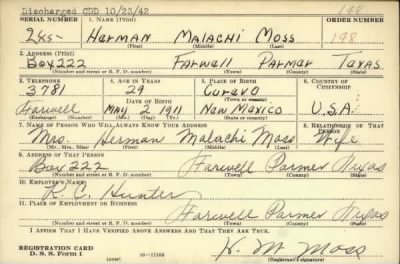 Discharged CDD 10/23/42 198
SERIAL NUMBER 1. NAME (Print) ORDER NUMBER
285- Herman Malachi Moss 198
(First) (Middle) (Last)
2. ADDRESS (Print)
Box 222 Farwell Parmer Texas
(Number and street or R. F. D. number) (Town) (County) (State)
3. TELEPHONE 4. AGE IN YEARS 5. PLACE OF BIRTH 6. COUNTRY OF CITIZENSHIP
3781 29 Cuervo
DATE OF BIRTH (Town or county)
Farwell May 2 1911 New Mexico U.S.A.
(Exchange) (Number) (Mo.) (Day) (Yr.) (State or country)
7. NAME OF PERSON WHO WILL ALWAYS KNOW YOUR ADDRESS 8. RELATIONSHIP OF THAT PERSON
Mrs. Herman Malachi Moss Wife
(Mr., Mrs., Miss) (First) (Middle) (Last)
9. ADDRESS OF THAT PERSON
Box 222 Farwell Parmer Texas
(Number and street or R. F. D. number) (Town) (County) (State)
10. EMPLOYER'S NAME
Hunter
11. PLACE OF EMPLOYMENT OR BUSINESS
Farwell Parmer Texas
(Number and street or R. F. D. number) (Town) (County) (State)
I AFFIRM THAT I HAVE VERIFIED ABOVE ANSWERS AND THAT THEY ARE TRUE.
REGISTRATION CARD
D. S. S. Form 1 (over) H. M. Moss
(Registrant's signature)